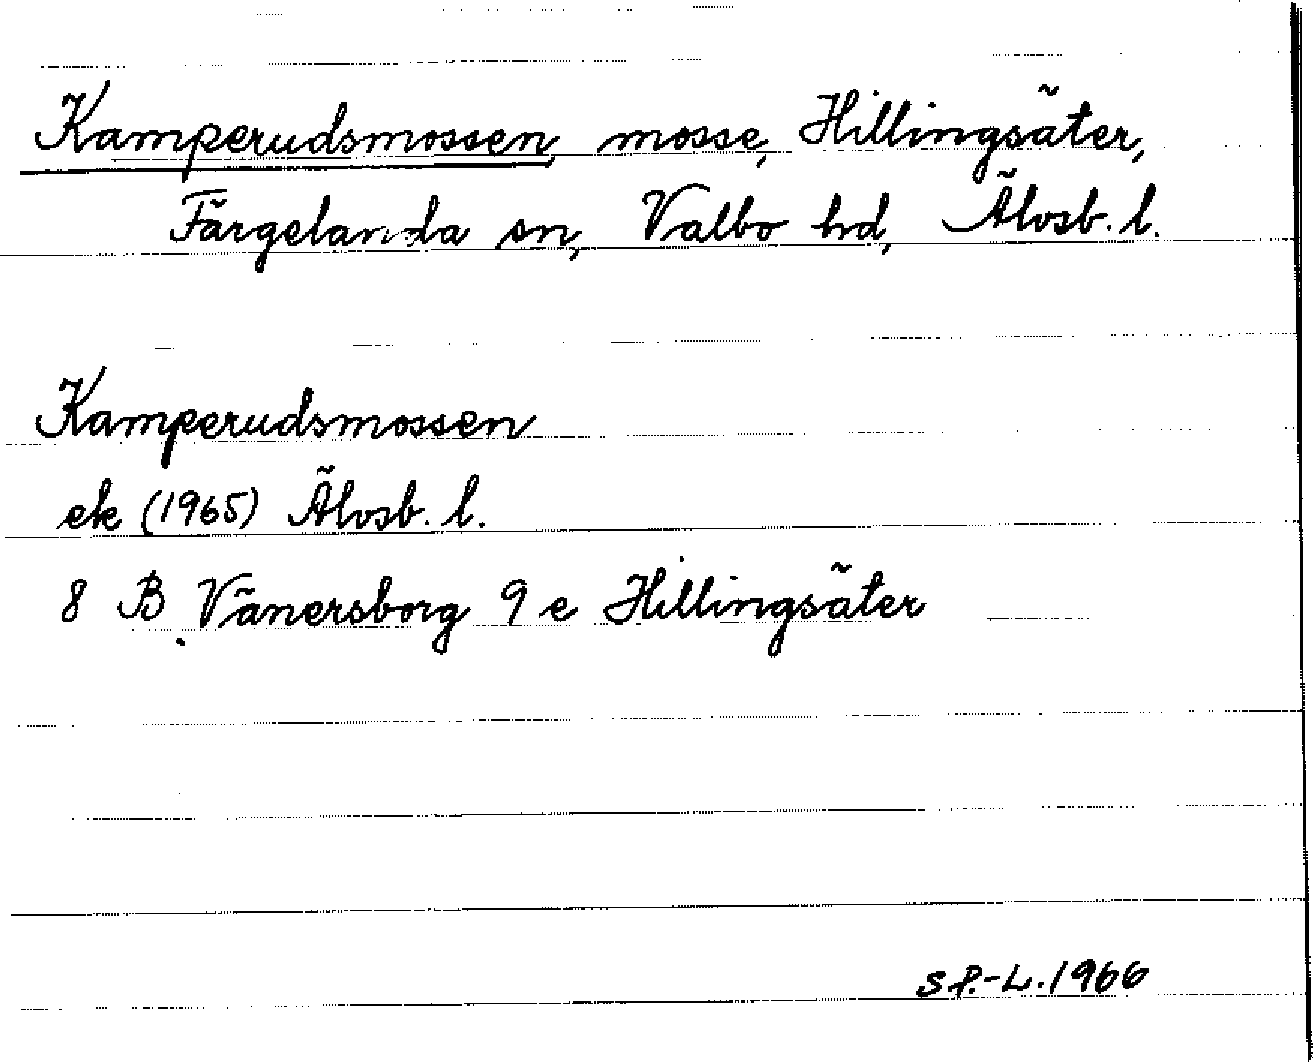 Kamperudsmossen, mosse, Hillingsäter,
Färgelanda sn, Valbo hd, Älvsb. l.
Kamperudsmossen
ek (1965) Älvsb. l.
8 B Vänersborg 9 e Hillingsäter
S P.-L. 1966